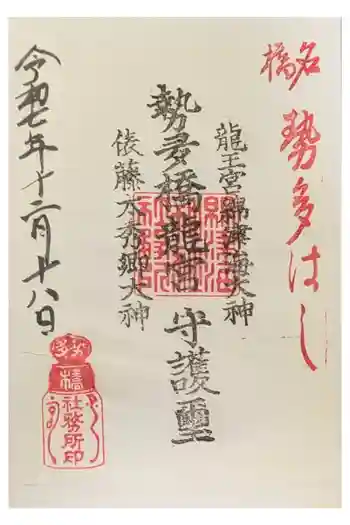 名橋
勢多はし
龍王宮綿津海大神
勢多橋龍宮 守護璽
俵藤太秀郷大神
令和七年十二月十八日
勢多
橋
社務所印